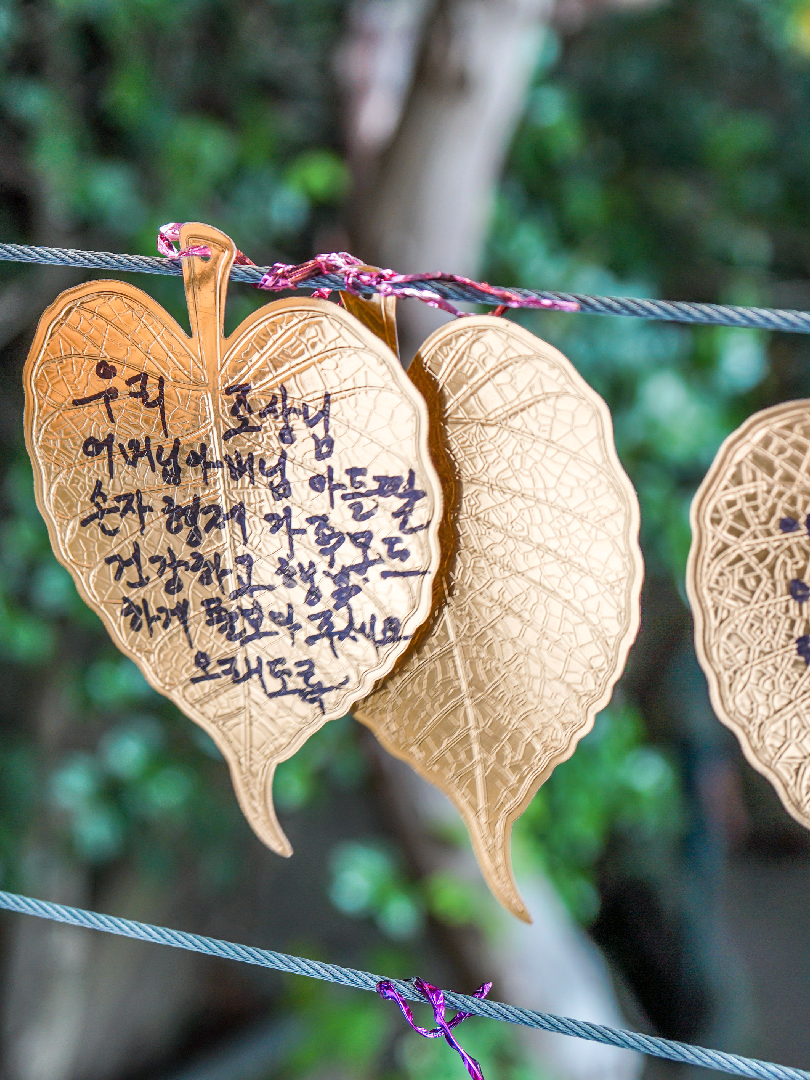 우리 조상님
어머님아버님 아들딸
손자 형제 가족모두
건강하고 행복
하게 돌보아 주세요
오래도록